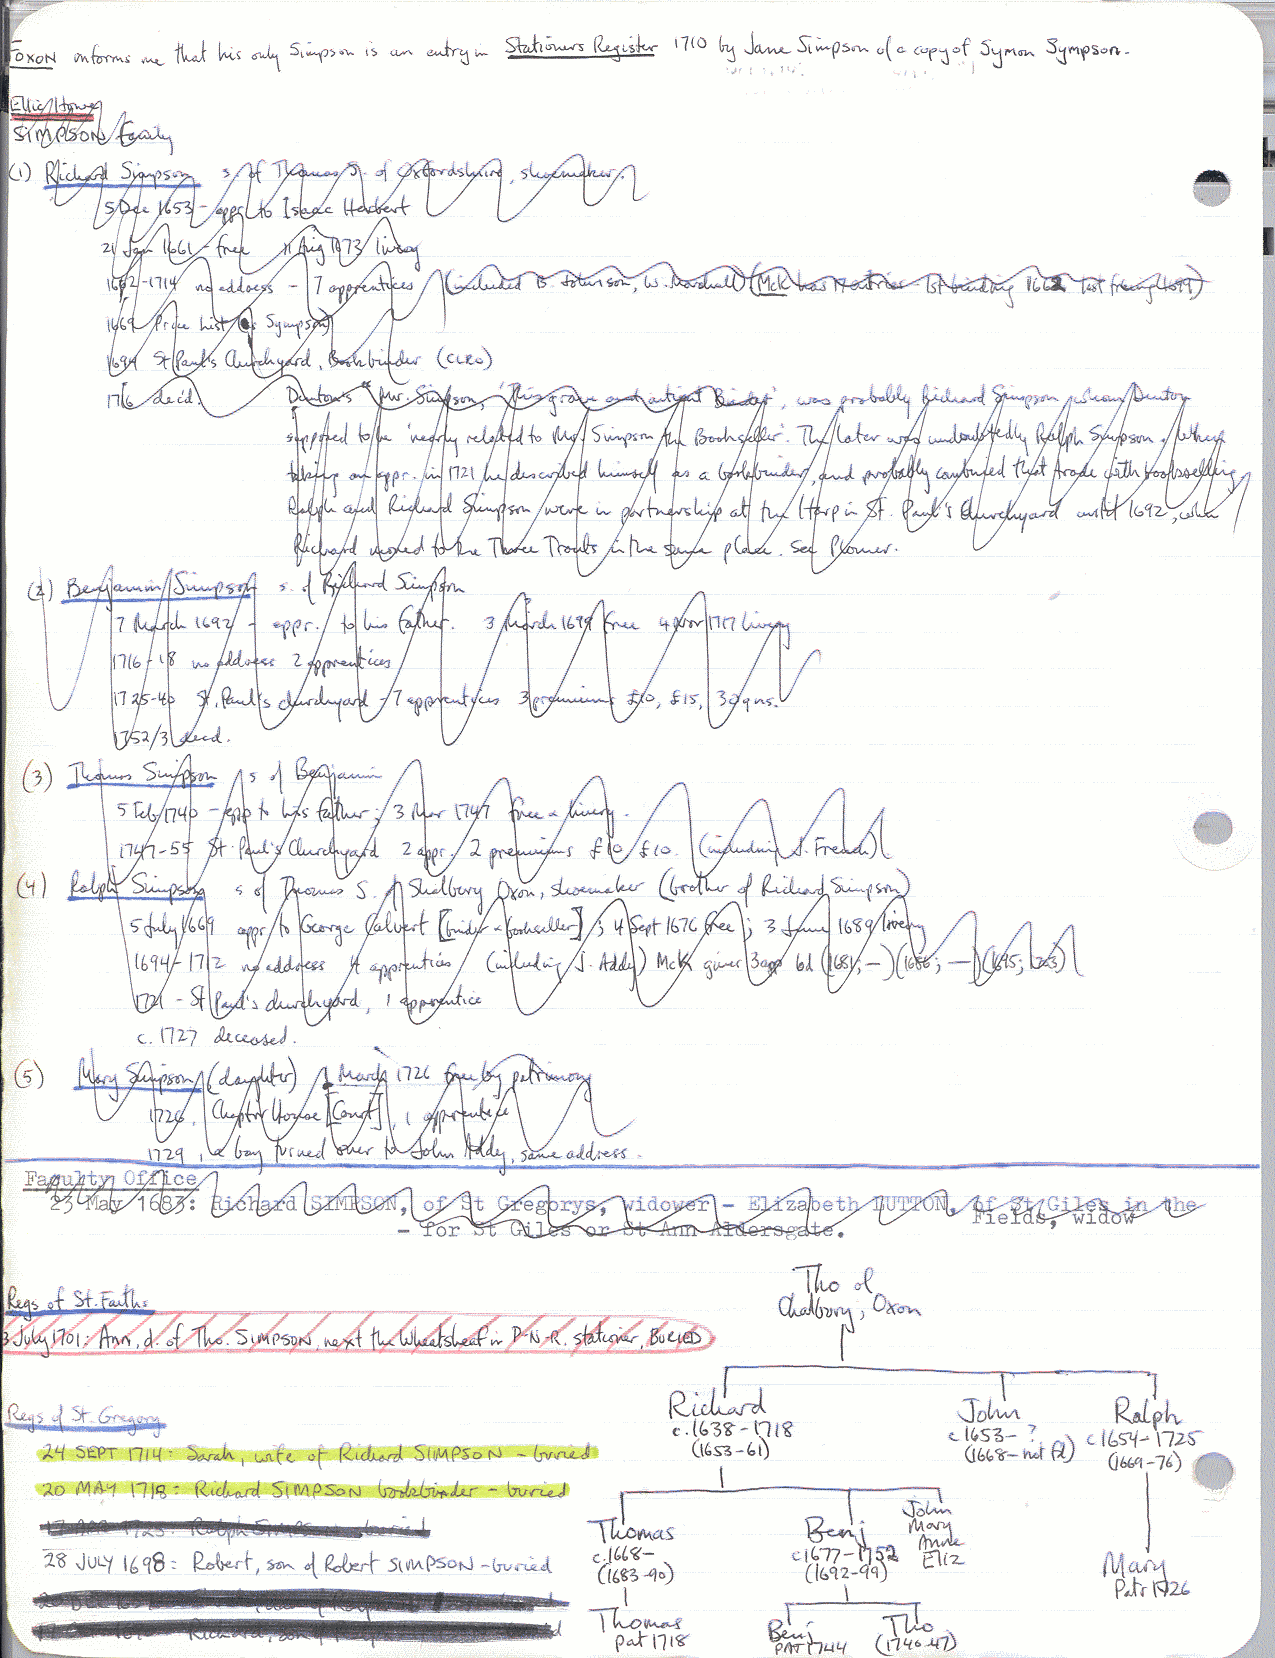 FOXON informs me that his only Simpson is an entry in Stationers Register 1710 by Jane Simpson of a copy of Symon Sympson.
Ellic Howe
SIMPSON Family
(1) Richard Simpson s. of Thomas S. of Oxfordshire, shoemaker.
5 Dec 1653 - appr. to Isaac Herbert
21 Jan 1661 - free 11 Aug 1673 livery
1662-1714 no address - 7 apprentices (included B. Johnson, W. Marshall) (McK has 17 entries - 1st binding 1662 last freeing 1699)
1669 Price list (as Sympson)
1694 St Paul's Churchyard, Bookbinder (CLRO)
1716 dec'd. Dunton's "Mr. Simpson, 'This grave and antient Binder', was probably Richard Simpson whom Dunton
supposed to be 'nearly related to Mr. Simpson the Bookseller'. The later was undoubtedly Ralph Simpson. When
taking an appr. in 1721 he described himself as a bookbinder, and probably combined that trade with bookselling.
Ralph and Richard Simpson were in partnership at the Harp in St. Paul's Churchyard until 1692, when
Richard moved to the Three Trouts in the same place. See Plomer.
(2) Benjamin Simpson s. of Richard Simpson
7 March 1692 - appr. to his father. 3 March 1699 free 4 Nov 1717 livery
1716-18 no address 2 apprentices
1725-40 St. Paul's churchyard - 7 apprentices 3 premiums £10, £15, 30 gns.
1752/3 decd.
(3) Thomas Simpson s of Benjamin
5 Feb 1740 - app to his father; 3 Mar 1747 free & livery.
1747-55 St. Paul's Churchyard 2 appr. 2 premiums £10 £10. (including J. French)
(4) Ralph Simpson s of Thomas S. of Shalbery Oxon, shoemaker (brother of Richard Simpson)
5 July 1669 appr. to George Calvert [binder & bookseller]; 4 Sept 1676 free; 3 June 1689 livery
1694-1712 no address 4 apprentices (including J. Addy) McK gives 3 app bd (1681; -) (1686; -) (1695; 1703)
1721 - St Paul's churchyard, 1 apprentice
c. 1727 deceased.
(5) Mary Simpson (daughter) 1 March 1726 free by patrimony
1726, Chapter House [Court], 1 apprentice
1729, a boy turned over to John Addy, same address.
Faculty Office
23 May 1683: Richard SIMPSON, of St Gregorys, widower - Elizabeth DUTTON, of St Giles in the
Fields, widow
- for St Giles or St Ann Aldersgate.
Tho of
Chalbury, Oxon
Regs of St. Faiths
3 July 1701: Ann, d. of Tho. SIMPSON, next the Wheatsheaf in P-N-R. stationer, BURIED
Richard
c.1638-1718
(1653-61)
John
c 1653-?
(1668- not fd)
Ralph
c 1654-1725
(1669-76)
Regs of St. Gregory
24 SEPT 1714: Sarah, wife of Richard SIMPSON - buried
20 MAY 1718: Richard SIMPSON bookbinder - buried
17 APR 1725: Ralph SIMPSON buried
28 JULY 1698: Robert, son of Robert SIMPSON - buried
Richard, son of
Thomas
c.1668-
(1683-90)
Benj
c1677-1752
(1692-99)
John
Mary
Anne
Eliz
Mary
Patr 1726
Thomas
pat 1718
Benj
PAT 1744
Tho
(1740-47)